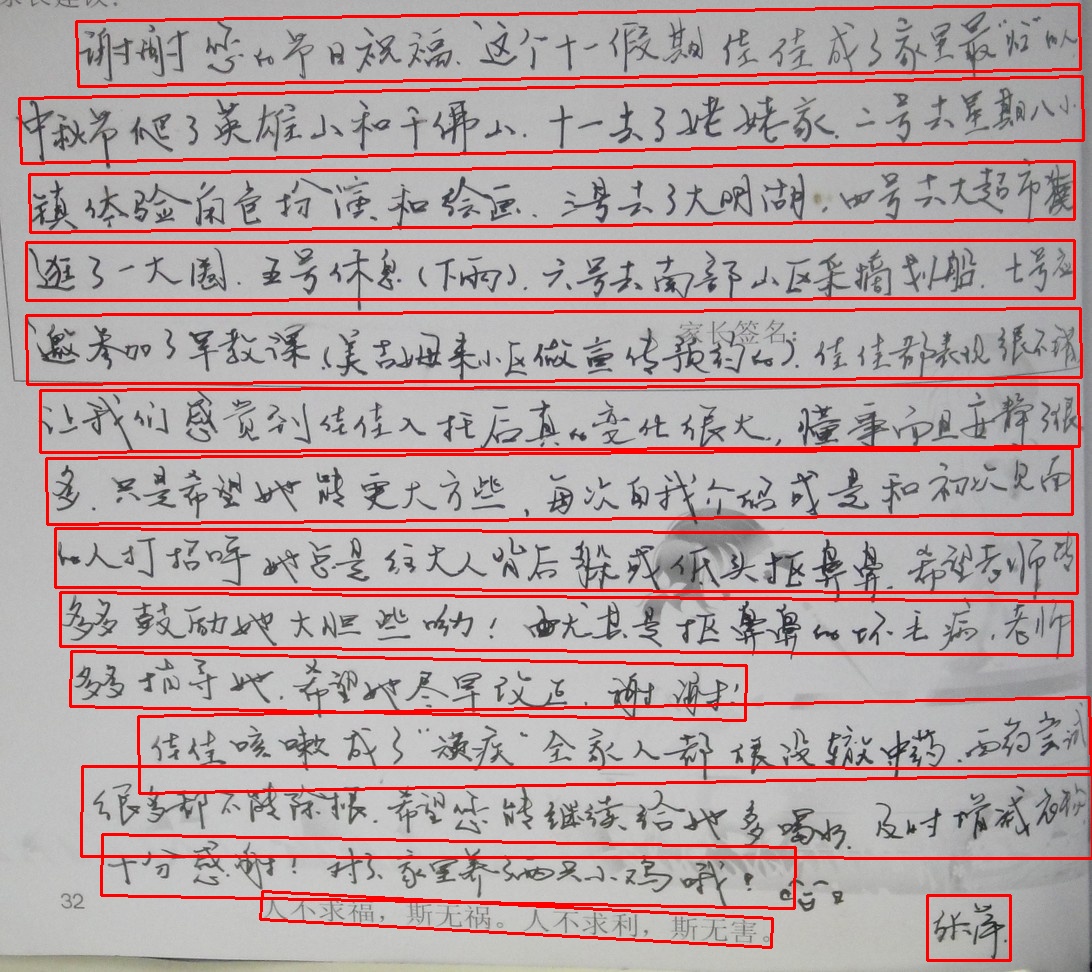 家长建议:
谢谢您的节日祝福.这个十一假期佳佳成了家里最"忙"的人
中秋节爬了英雄山和千佛山.十一去了姥姥家.二号去星期八小
镇体验角色扮演和绘画.三号去了大明湖.四号去大超市
逛了一大圈.五号休息(下雨).六号去南部山区采摘划船.七号应
家长签名:
邀参加了早教课(美吉姆来小区做宣传预约的).佳佳都表现很不错
让我们感觉到佳佳入托后真的变化很大,懂事而且安静了很
多.只是希望她能更大方些,每次自我介绍或是和初次见面
的人打招呼她总是往大人背后躲或低头抠鼻鼻.希望老师能
多多鼓励她大胆些哟!尤其是抠鼻鼻的坏毛病.老师
多多指导她.希望她尽早改正.谢谢!
佳佳咳嗽成了"顽疾"全家人都很没辙中药.西药尝试
很多都不能除根.希望您能继续给她多喝水.及时增减衣物
十分感谢!对了家里养了两只小鸡哦!
32
人不求福，斯无祸。人不求利，斯无害。
张萍